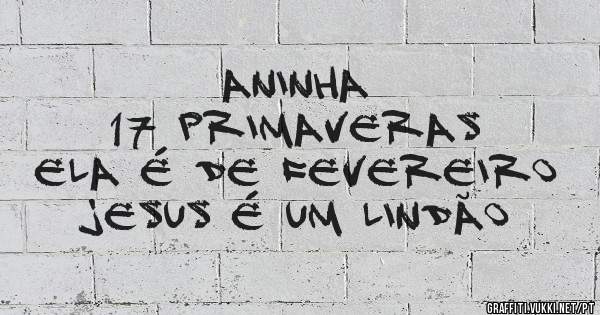 ANINHA
17 PRIMAVERAS
ELA É DE FEVEREIRO
JESUS É UM LINDÃO
GRAFFITI.VUKKI.NET/PT